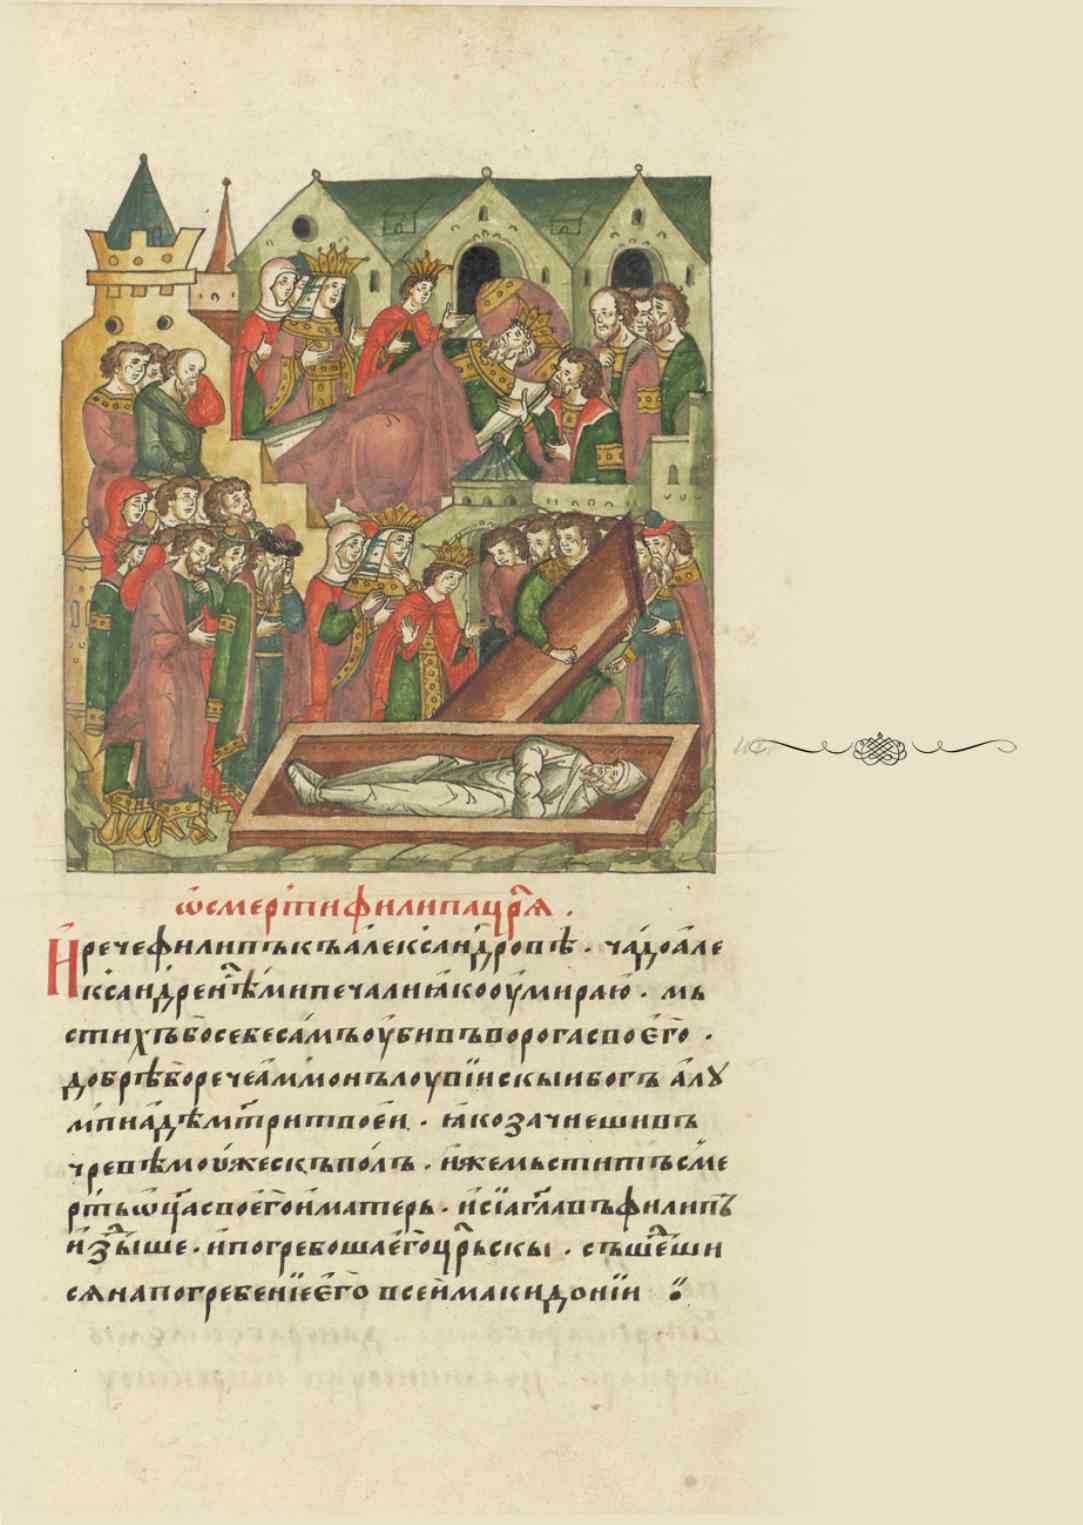 ѡсмертифилипацр҃ѧ .
Иречефилипъкъалеѯандровѣ . чадоале
ксандрен҃ѣмипечалиꙗкооумираю . мь
стихъбосебесамъоубивъворогасвоего .
добрѣборечеаммонълоувїискыибогъ алꙋ
мпиадѣмт҃ритвоеи . ꙗкозачнешивъ
чревѣмоужескъполъ . ижемьститъсме
ртьѡц҃асвоегоиматерь . исїаглавъфилипъ
издъ҃ше . ипогребошаегоцр҃ьскы . съшеши
сѧнапогребенїеего всеимакидонїи